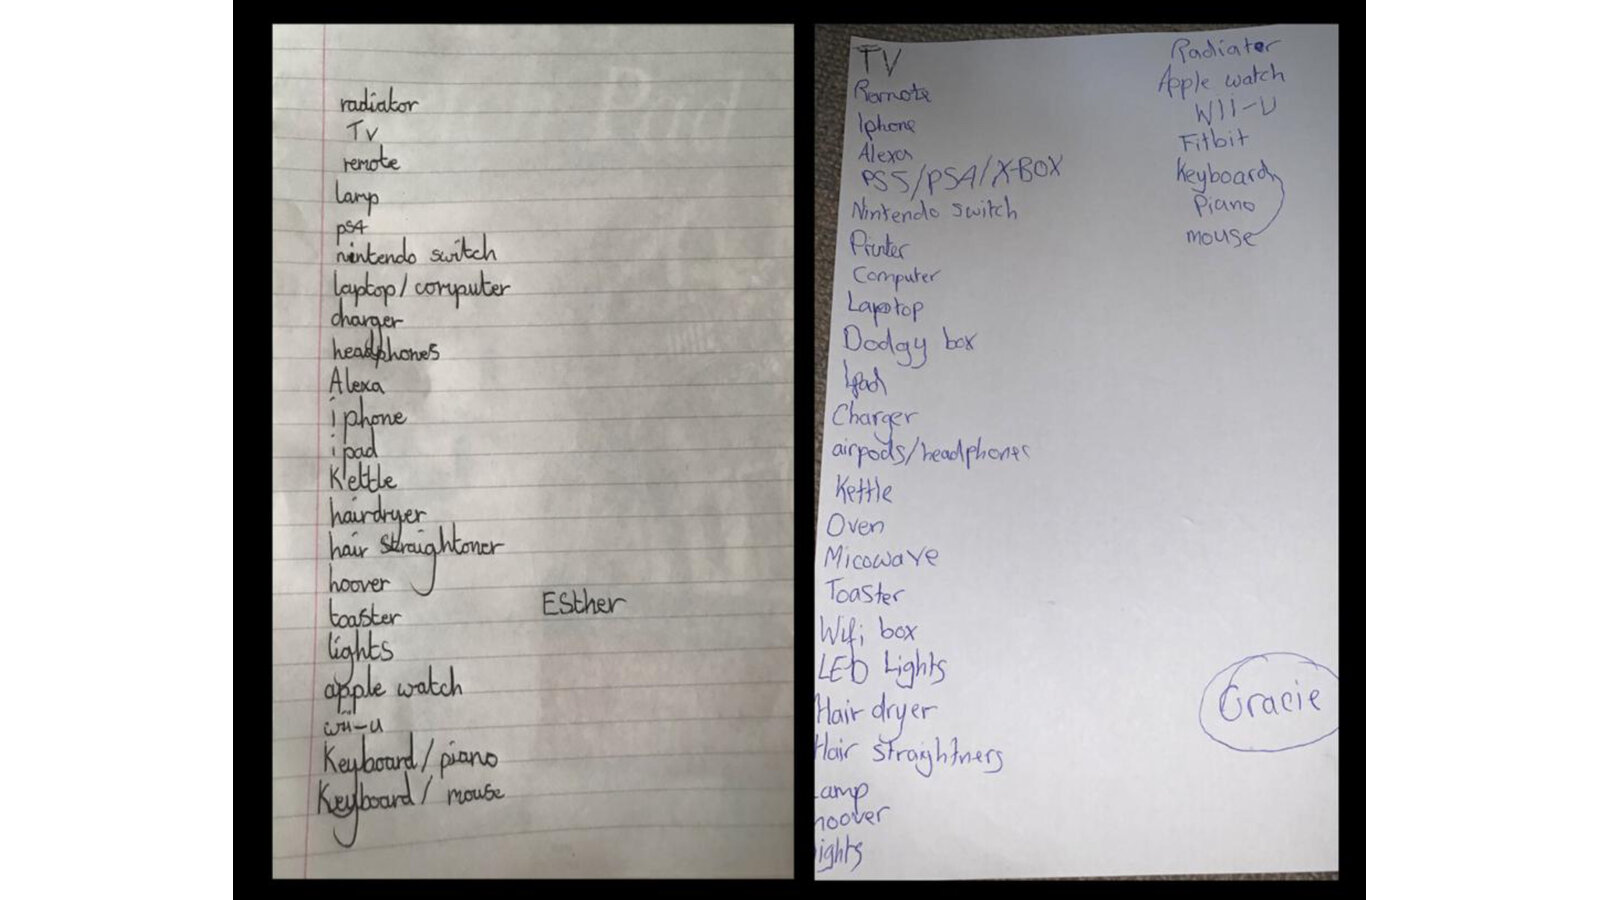 radiator
TV
remote
lamp
ps4
nintendo switch
laptop/computer
charger
headphones
Alexa
iphone
ipad
Kettle
hairdryer
hair straightoner
hoover
toaster
Esther
lights
apple watch
wii-u
Keyboard/piano
Keyboard/ mouse
TV
Remote
Iphone
Alexa
PS5/PS4/X-BOX
Nintendo switch
Printer
Computer
Laptop
Dodgy box
Ipad
Charger
airpods/headphones
Kettle
Oven
Micowave
Toaster
Wifi box
LED Lights
Hair dryer
Hair straightners
Lamp
hoover
lights
Radiator
Apple watch
WII-U
Fitbit
Keyboard
Piano
mouse
Gracie